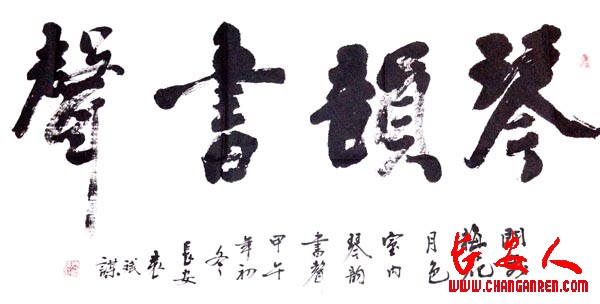 琴韻書聲
月色
室内
琴韵
書聲
甲午
年初
冬
長安
袁
斌
长安人
WWW.CHANGANREN.COM